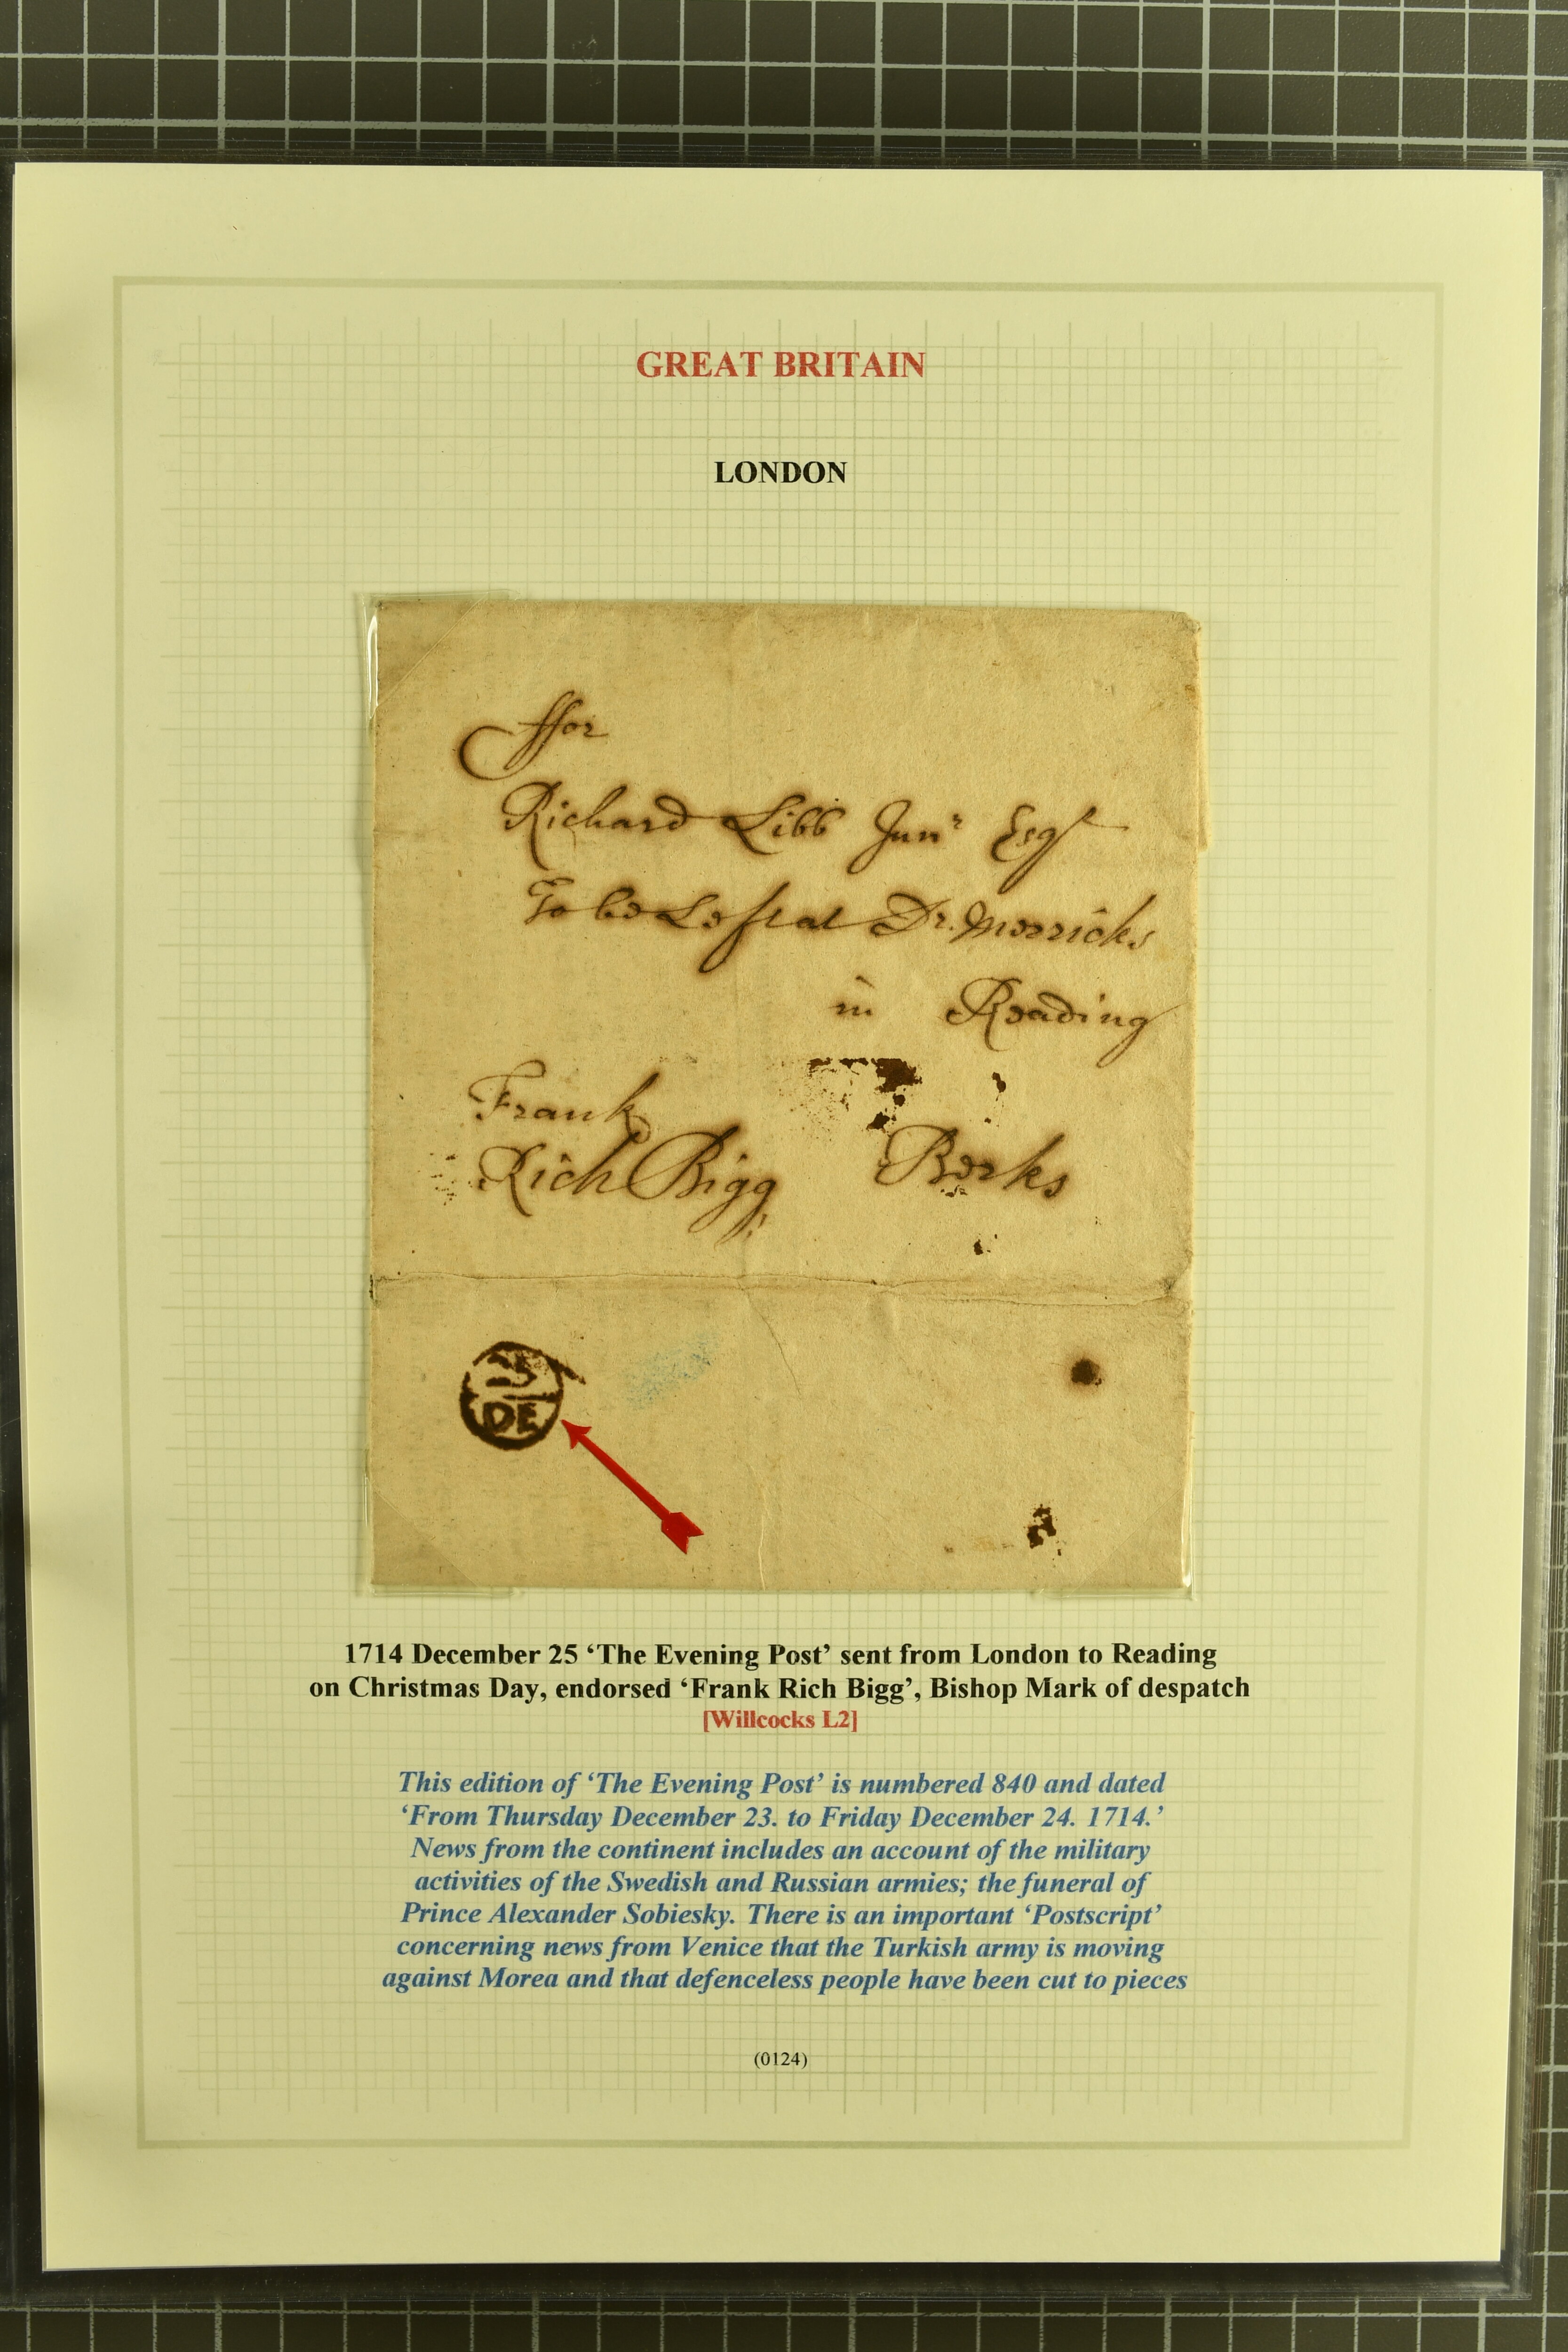 GREAT BRITAIN
LONDON
ffor
Richard Libb Junr Esqr
To be Left at Dr. Merricks
in Reading
Frank
Rich Bigg Berks
25
DE
1714 December 25 ‘The Evening Post’ sent from London to Reading
on Christmas Day, endorsed ‘Frank Rich Bigg’, Bishop Mark of despatch
[Willcocks L2]
This edition of ‘The Evening Post’ is numbered 840 and dated
‘From Thursday December 23. to Friday December 24. 1714.’
News from the continent includes an account of the military
activities of the Swedish and Russian armies; the funeral of
Prince Alexander Sobiesky. There is an important ‘Postscript’
concerning news from Venice that the Turkish army is moving
against Morea and that defenceless people have been cut to pieces
(0124)